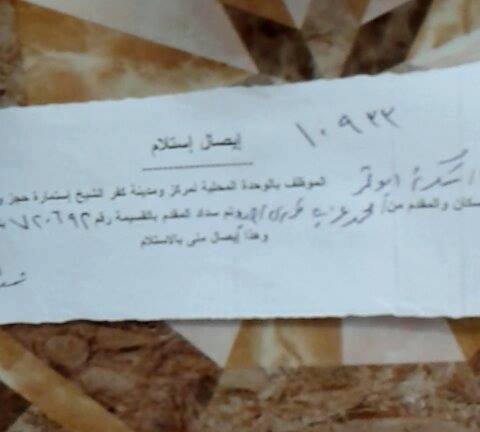 ١٠٩٣٣
إيصال إستلام
الموظف بالوحدة المحلية لمركز ومدينة كفر الشيخ إستمارة حجز
سكان والمقدم من/ محمد وتم سداد المقدم بالقسيمة رقم ٧٢٠٦٩٢
وهذا إيصال منى بالاستلام